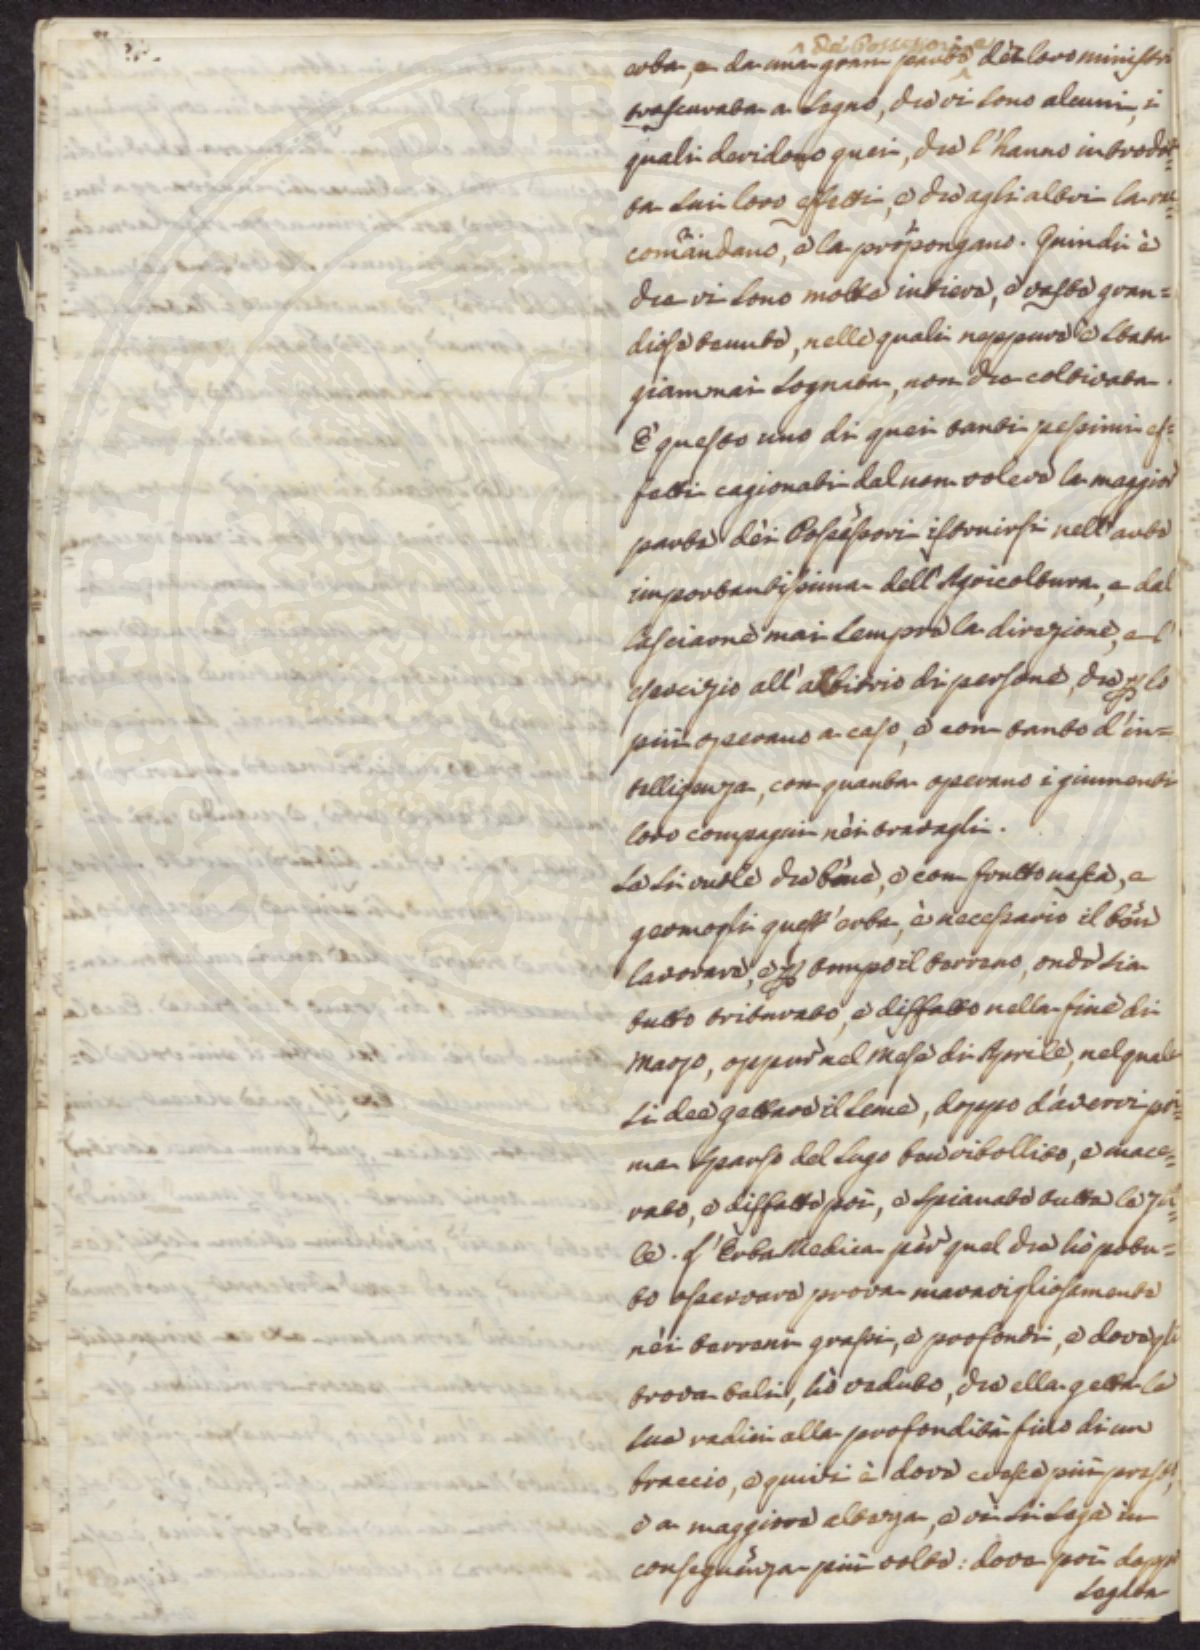 de' Possessori, e
erba, e da una gran parte dei loro ministri
trascurata a segno, che vi sono alcuni, i
quali deridono quei, che l'hanno introdot=
ta sui loro effetti, e che agli altri la rac=
comandano, e la propongano. Quindi è
che vi sono molte intiere, e vaste gran=
diose tenute, nelle quali neppure è stata
giammai sognata, non che coltivata.
È questo uno di quei tanti pessimi ef=
fetti cagionati dal non volere la maggior
parte dèi Possessori istruirsi nell'arte
importantissima dell'Agricoltura, e dal
lasciarne mai sempre la direzione, e l'
esercizio all'albitrio di persone, che p lo
più operano a caso, e con tanto d'in=
telligenza, con quanta operano i giumenti
loro compagni nèi travagli.
Se si vuole che bene, e con frutto nasca, e
germogli quest'erba, è necessario il ben
lavorare, e p tempo il terreno, onde sia
tutto triturato, e disfatto nella fine di
Marzo, oppur nel Mese di Aprile, nel quale
si dee gettare il seme, doppo d'avervi pri=
ma sparso del sugo ben ribollito, e mace=
rato, e disfatte poi, e spianate tutte le zol=
le. L'Erba Medica pèr quel che hò potu=
to osservare prova maravigliosamente
nèi terreni grassi, e profondi, e dove gli
trova tali, hò veduto, che ella getta le
sue radici alla profondità fino di un
braccio, e quivi è dove cresce più presto,
e a maggiore altezza, e vi si sega in
conseguenza più volte: dove poi doppo
segata